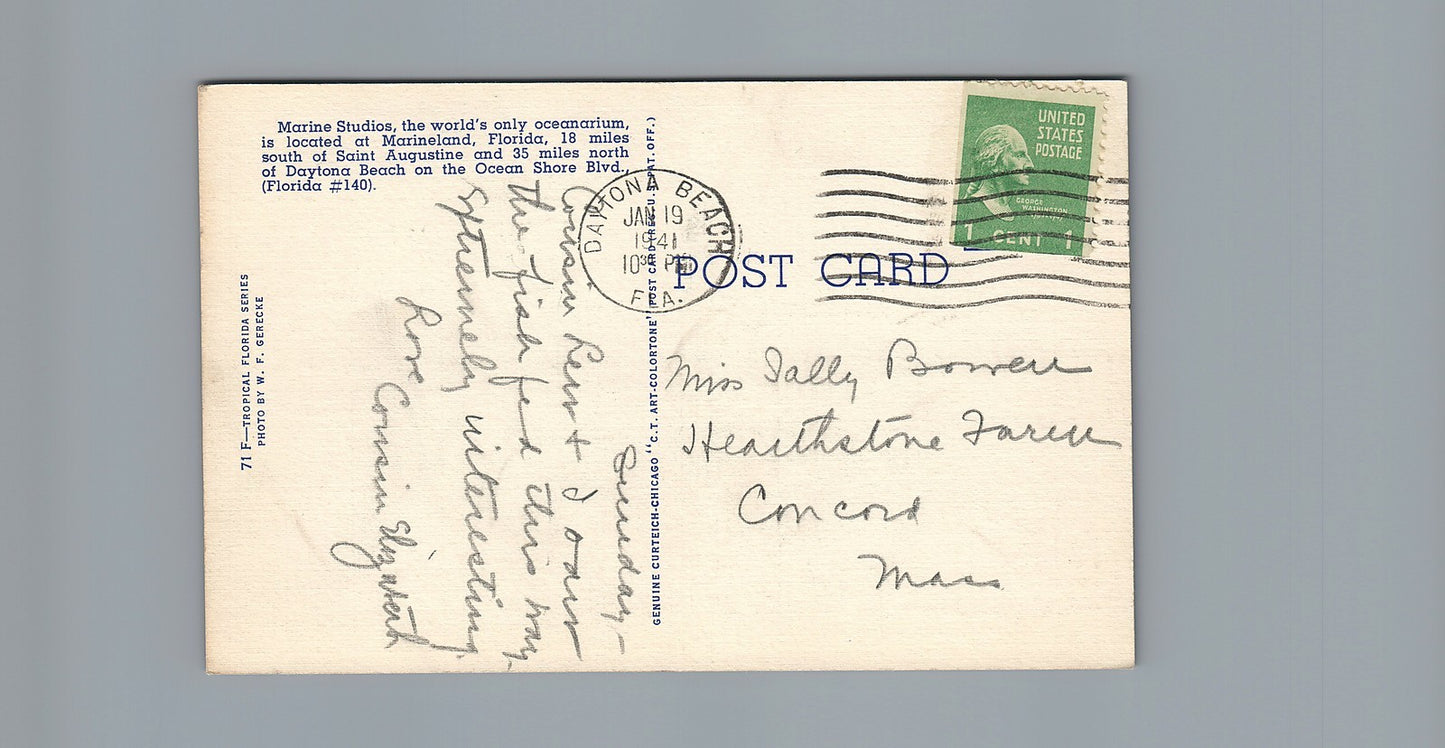 Marine Studios, the world's only oceanarium,
is located at Marineland, Florida, 18 miles
south of Saint Augustine and 35 miles north
of Daytona Beach on the Ocean Shore Blvd.,
(Florida #140).
71 F—TROPICAL FLORIDA SERIES
PHOTO BY W. F. GERECKE
Sunday—
Cousin & I saw
the fish fed this way.
Extremely interesting.
Love
Cousin Elizabeth
GENUINE CURTEICH-CHICAGO "C.T. ART-COLORTONE" POST CARD (REG. U.S. PAT. OFF.)
DAYTONA BEACH
JAN 19
1941
10 30 PM
FLA.
POST CARD
UNITED
STATES
POSTAGE
GEORGE
WASHINGTON
1 CENT 1
Miss Sally Bowen
Hearthstone Farm
Concord
Mass